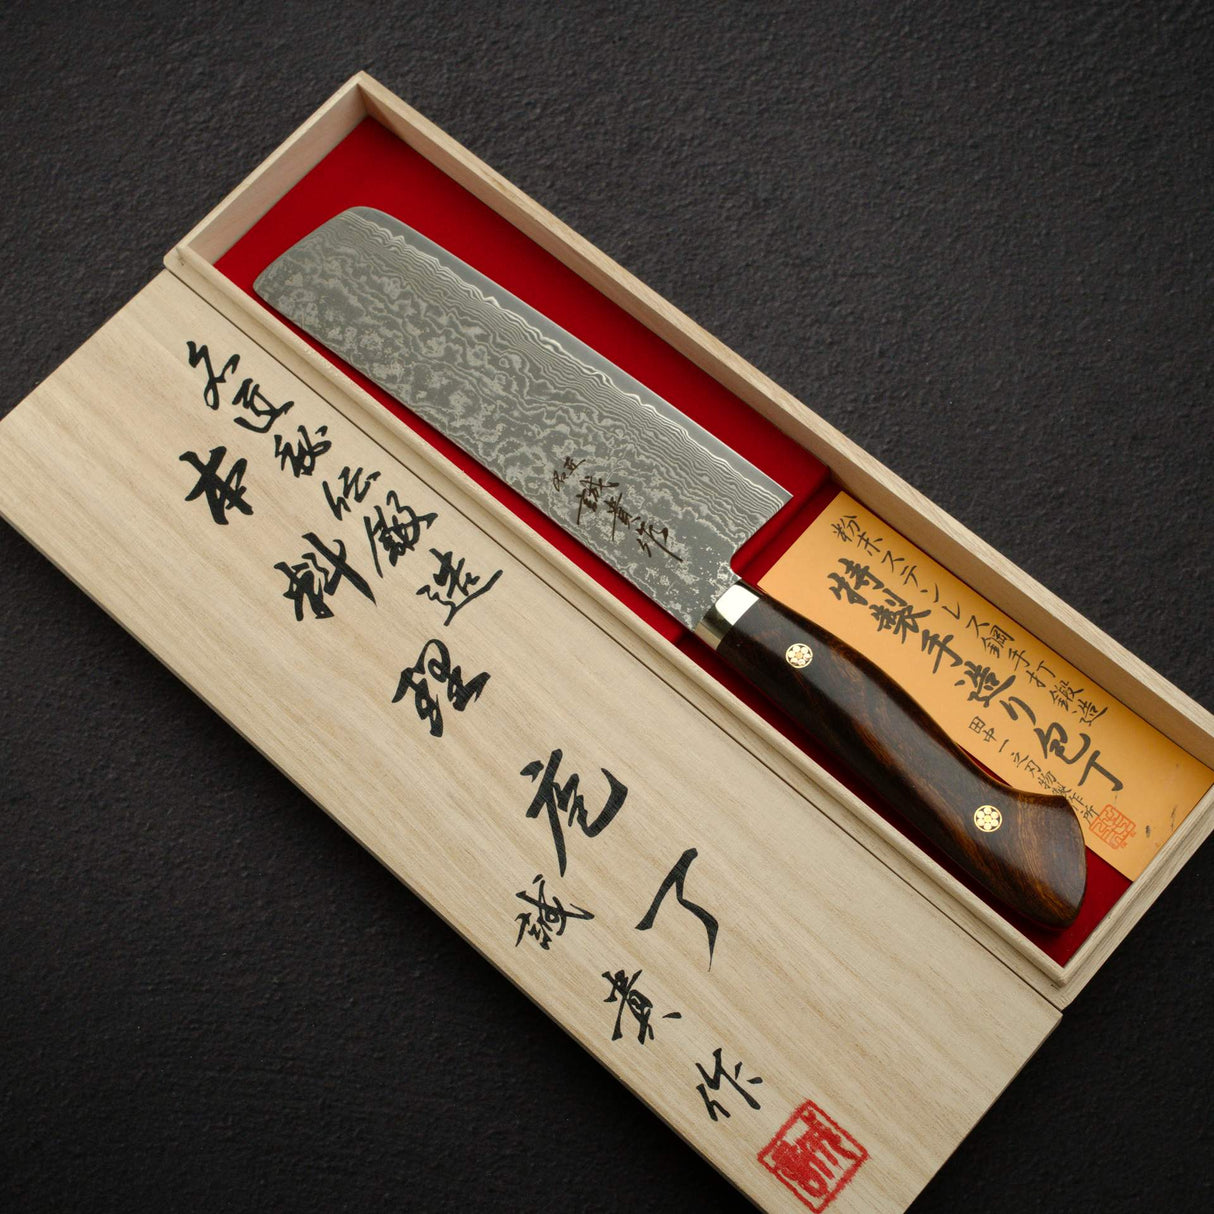 名匠秘伝鍛造
本料理庖丁
誠貴作
名匠
誠貴作
粉末ステンレス鋼手打鍛造
特製手造り包丁
田中一之刃物製作所